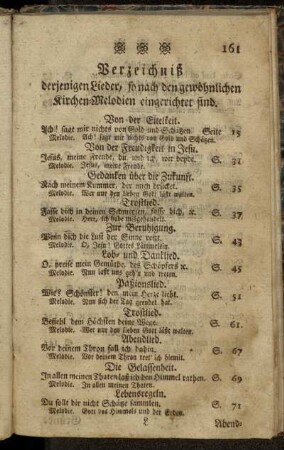 161
Verzeichniß
derjenigen Lieder, so nach den gewöhnlichen
Kirchen-Melodien eingerichtet sind.
Von der Eitelkeit.
Ach! sagt mir nichts von Gold und Schätzen. Seite 15
Melodie. Ach! sagt mir nichts von Gold und Schätzen.
Von der Freudigkeit in Jesu.
Jesus, meine Freude, du und ich, wir beyde. S. 31
Melodie. Jesus, meine Freude.
Gedanken über die Zukunft.
Nach meinem Kummer, der mich drücket. S. 35
Melodie. Wer nur den lieben Gott läßt walten.
Trostlied.
Fasse dich in deinen Schmerzen, fasse dich, ꝛc. S. 37
Melodie. Herr, ich habe mißgehandelt.
Zur Beruhigung.
Wenn dich die Lust der Sünde reizt. S. 43
Melodie. O, Jesu! Gottes Lämmelein.
Lob- und Danklied.
O, preise mein Gemüthe, des Schöpfers ꝛc. S. 45
Melodie. Nun laßt uns geh'n und treten.
Paßionslied.
Wie's Schönster! den mein Herze liebt. S. 51
Melodie. Nun sich der Tag geendet hat.
Trostlied.
Befiehl dem Höchsten deine Wege. S. 61.
Melodie. Wer nur den lieben Gott läßt walten.
Abendlied.
Vor deinem Thron fall ich dahin. S. 67
Melodie. Vor deinem Thron tret' ich hiemit.
Die Gelassenheit.
In allen meinen Thaten laß ich den Himmel rathen. S. 69
Melodie. In allen meinen Thaten.
Lebensregeln.
Du sollt dir nicht Schätze sammlen, S. 71
Melodie. Gott des Himmels und der Erden.
L Abend-